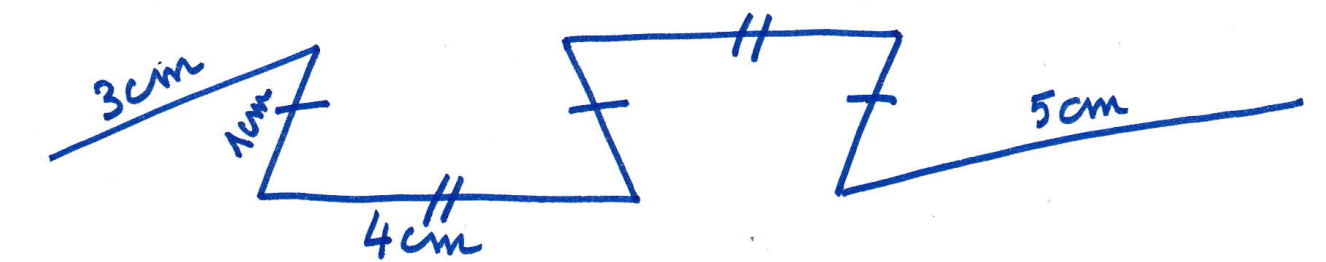 3cm
1cm
4cm
5cm